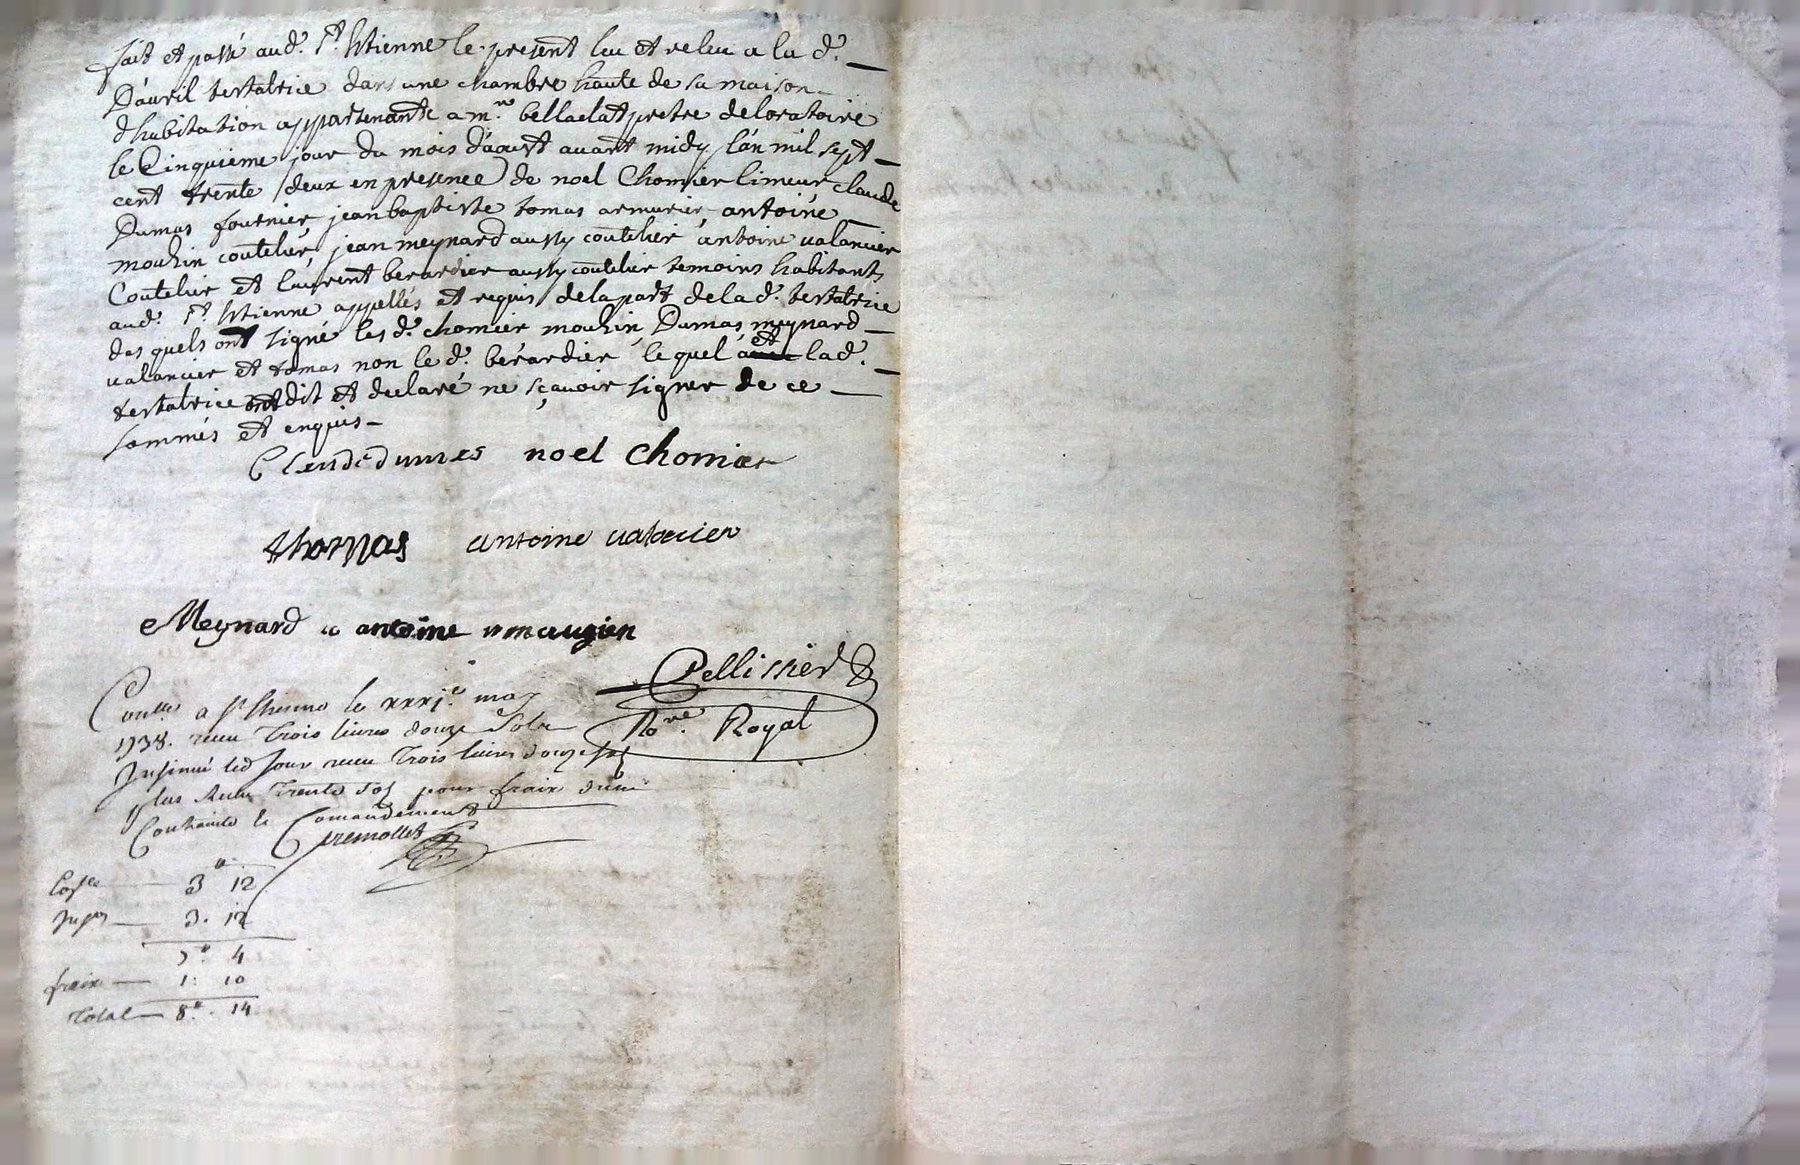 fait et passé aud. St. Estienne le present leu et releu a la d.
D'auril testatrice dans une chambre haute de sa maison
dhabitation appartenante a mre. bellaclat pretre de loratoire
le Cinquieme jour du mois d'aoust avant midy l'an mil sept
cent trente deux en presence de noel Chomier limeur claude
Dumas fournier, jean baptiste tomas armurier antoine
moulin coutelier, jean meynard aussy coutelier antoine valancier
Coutelier et laurent berardier aussy coutelier temoins habitants
aud. St. Estienne appellés et requis de la part de la d. testatrice
des quels ont signé les d. chomier moulin, Dumas meynard
valancier et tomas non le d. berardier le quel et la d.
testatrice ont dit et declaré ne sçavoir signer de ce
sommés et enquis
Claude dumas noel Chomier
thomas antoine valancier
Meynard antoine
Pellissier
No.re Royal
Conllé a St Etienne le xxxi.e may
1738. receu Trois livres douze Sols
Insinué led Jour receu Trois livres douze sols
plus Receu Trente sols pour fraix dune
Contrainte le Comandement
tremollet
3# 12
3. 12
7# 4
fraix 1: 10
Total 8#. 14